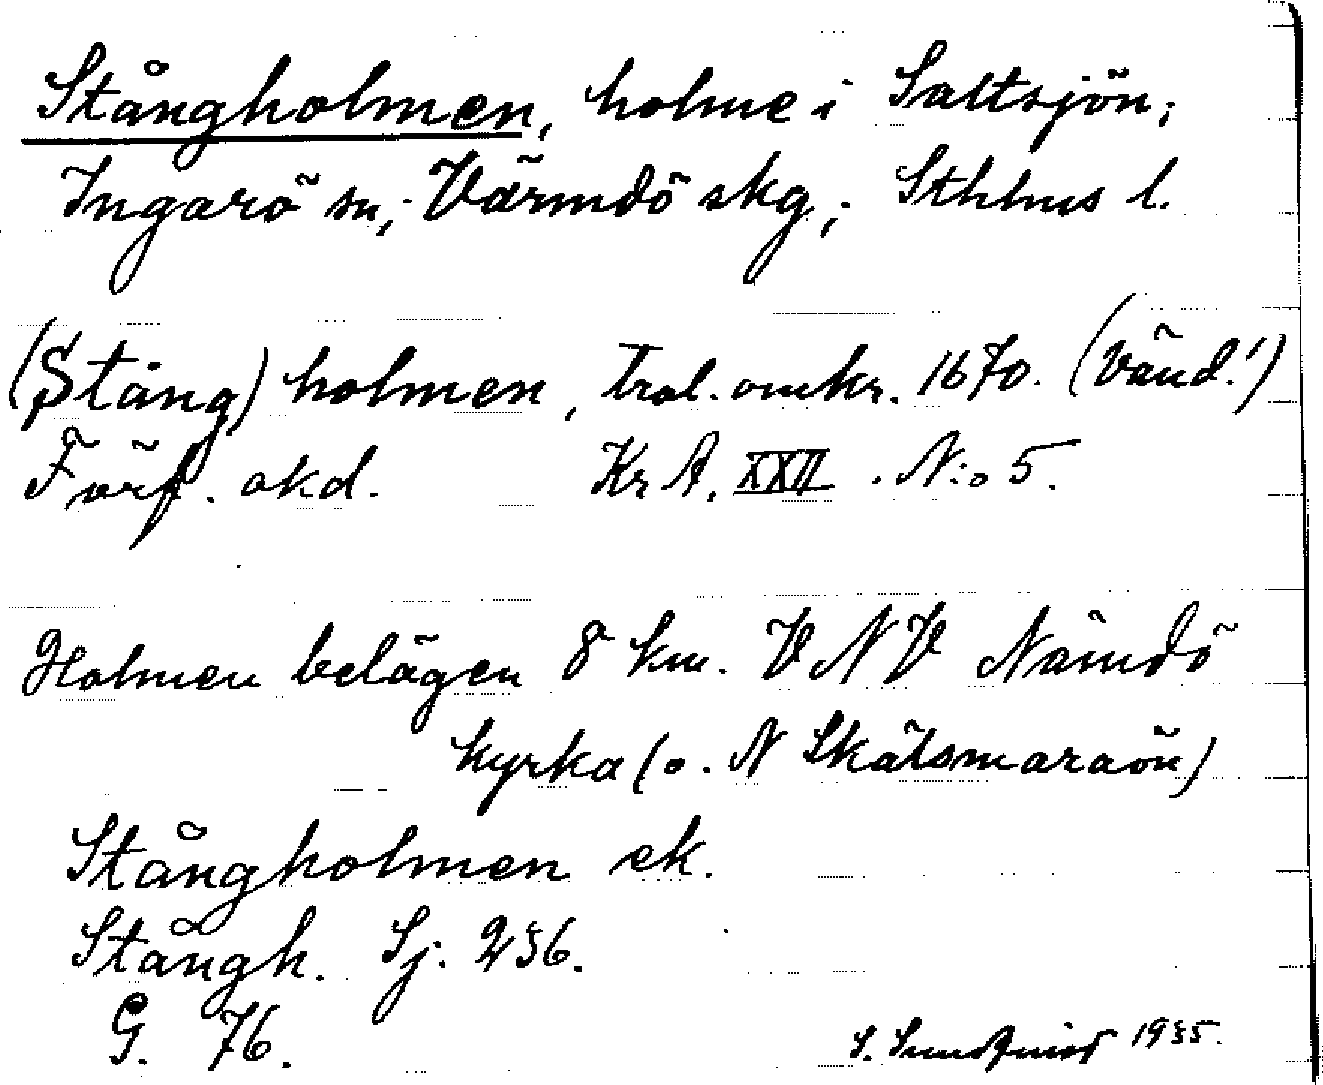 Stångholmen, holme i Saltsjön;
Ingarö sn; Värmdö skg; Sthlms l.
(Stång) holmen, trol. omkr. 1670. (Vänd!)
Förf. okd. Kr A. XXII. N:o 5.
Holmen belägen 8 km. VNV Nämdö
kyrka (o. N Skälsmaraön)
Stångholmen ek.
Stångh. Sj. 236.
G. 76.
S. Sundqvist 1935.